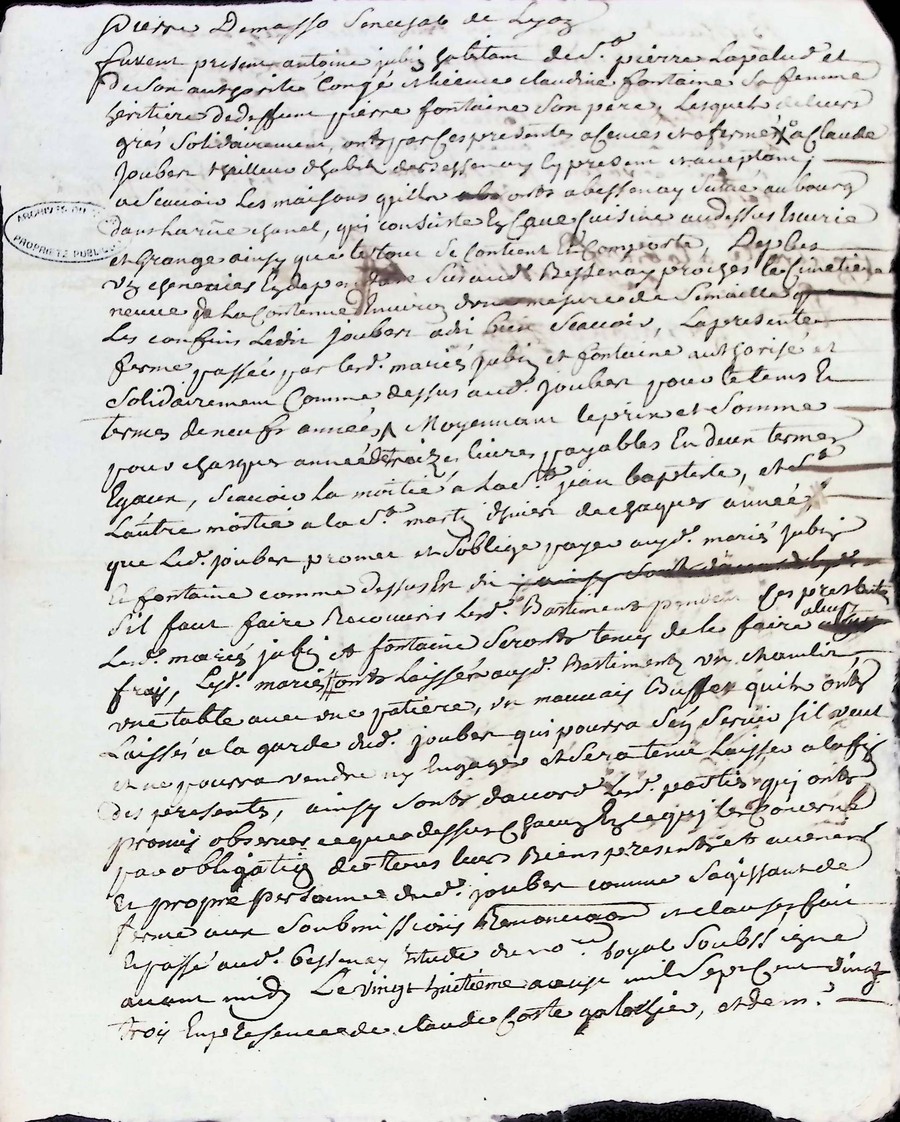 pierre Demasso senechal de Lyon
furent present antoine jubin habitant de St. pierre Lapalud et
De son authorité Congé et licence claudine fontaine sa femme
heritiere de deffunt pierre fontaine son pere, Lesquels de leurs
grés solidairement, onts par ces presentes acences et afermé a Claude
Joubert tailleur d'habit de Bessenay cy present et acceptant,
a scavoir Les maisons quils onts a bessenay situé au bourg
dans la rue chanel, qui consiste En Cave Cuisine audessus Escurie
et Grange ainsy que le tout se contient Et Comporte, De plus
un chenevier En dependant situé aud. Bessenay proches le Cimetiere
neuve De la Contenue Environ d'une mesure de semaille
Les confins Ledit Joubert a dit bien scavoir, La presente
ferme passée par lesd. mariés jubin et fontaine authorisé et
solidairement Comme dessus aud. joubert pour le tems Et
termes de neufs années, Moyennant le prix et somme
pour chasques année de traize livres payables En deux termes
Egaux, scavoir la moitié a la St. jean baptiste, et
L'autre moitié a la St. martin d'hiver de chaques année,
que Led. joubert promet et s'oblige payer ausd. mariés jubin
Et fontaine comme dessus Est dit
s'il faut faire Recouvrir Lesd. Bastiments pendant Ces presentes
Lesd. mariés jubin et fontaine seronts tenus de le faire a leurs
frais, Lesd. mariés onts Laissés ausd. Bastiments un chaulin
une table avec une patiere, un mauvais Buffet quils onts
Laissés a la garde dud. joubert qui pourra s'en servir s'il veut
et ne pourra vendre ny Engager et sera tenu Laisser a la fin
des presentes, ainsy sonts d'accord Lesd. parties qui onts
promis observer ce que dessus chacun En ce qui les concerne
par obligation de tous leurs Biens presents et avenirs
Et propre personne dud. joubert comme s'agissant de
ferme aux soubmissions Renonciaons et clauses fait
Et passé aud. bessenay Estude du no.re Royal soubssigné
avant midy Le vingt huitième aoust mil sept cent vingt
trois En presence de claude Coste galochier, et de m.e
ARCHIVES DU
PROPRIÉTÉ PUBLIQUE